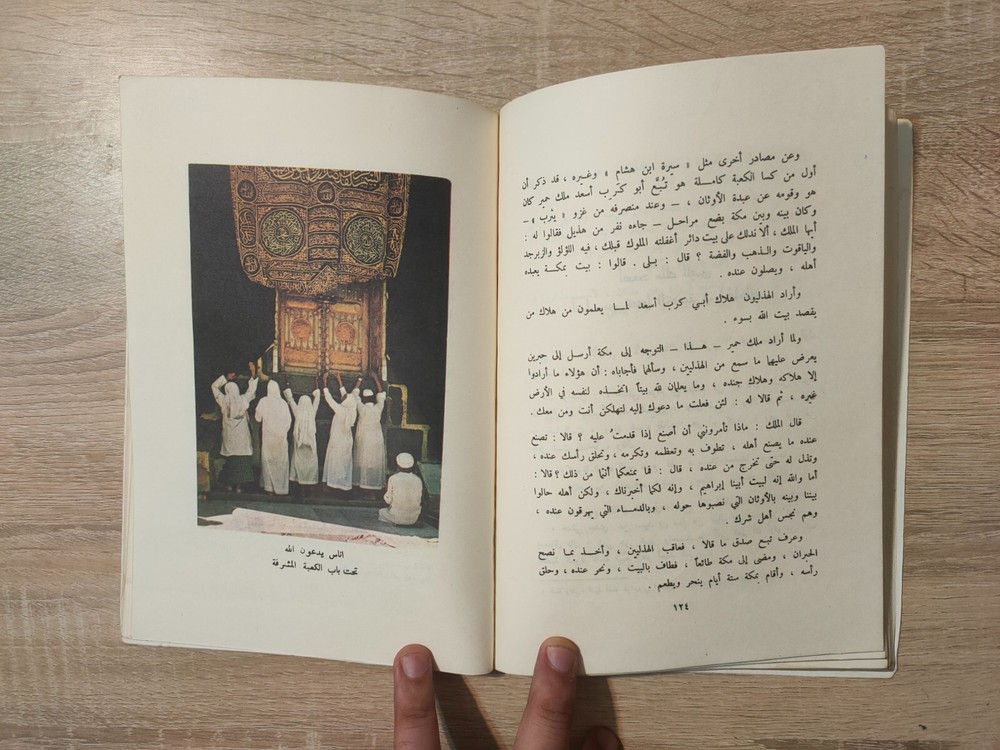 وعن مصادر أخرى مثل « سيرة ابن هشام » وغيره ، قد ذكر أن
أول من كسا الكعبة كاملة هو تُبَّع أبو كَرِب أسعد ملك حمير كان
هو وقومه عن عبدة الأوثان ، – وعند منصرفه من غزو « يثرب » –
وكان بينه وبين مكة بضع مراحل – جاءه نفر من هذيل فقالوا له :
أيها الملك ، ألا ندلك على بيت دائر أغفلته الملوك قبلك ، فيه اللؤلؤ والزبرجد
والياقوت والذهب والفضة ؟ قال : بلى . قالوا : بيت بمكة يعبده
أهله ، ويصلون عنده .
وأراد الهذليون هلاك أبي كرب أسعد لما يعلمون من هلاك من
يقصد بيت الله بسوء .
ولما أراد ملك حمير – هذا – التوجه إلى مكة أرسل إلى حبرين
يعرض عليهما ما سمع من الهذليين ، وسألهما فأجاباه : أن هؤلاء ما أرادوا
إلا هلاكه وهلاك جنده ، وما يعلمان لله بيتاً اتخذه لنفسه في الأرض
غيره ، ثم قالا له : لئن فعلت ما دعوك إليه لتهلكن أنت ومن معك .
قال الملك : ماذا تأمرونني أن أصنع إذا قدمتُ عليه ؟ قالا : تصنع
عنده ما يصنع أهله ، تطوف به وتعظمه وتكرمه ، وتحلق رأسك عنده ،
وتذل له حتى تخرج من عنده ، قال : فما يمنعكما أنتما من ذلك ؟ قالا :
أما والله إنه لبيت أبينا إبراهيم ، وإنه لكما أخبرناك ، ولكن أهله حالوا
بيننا وبينه بالأوثان التي نصبوها حوله ، وبالدماء التي يهرقون عنده ،
وهم نجس أهل شرك .
وعرف تبع صدق ما قالا ، فعاقب الهذليين ، وأخذ بما نصح
الحبران ، ومضى إلى مكة طائعاً ، فطاف بالبيت ، ونحر عنده ، وحلق
رأسه ، وأقام بمكة ستة أيام ينحر ويطعم .
١٢٤
اناس يدعون الله
تحت باب الكعبة المشرفة